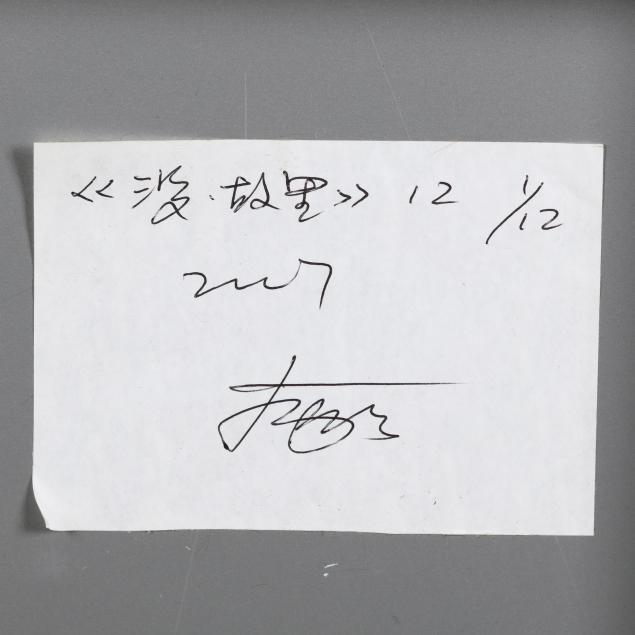 《没·故里》 12 1/12
2007